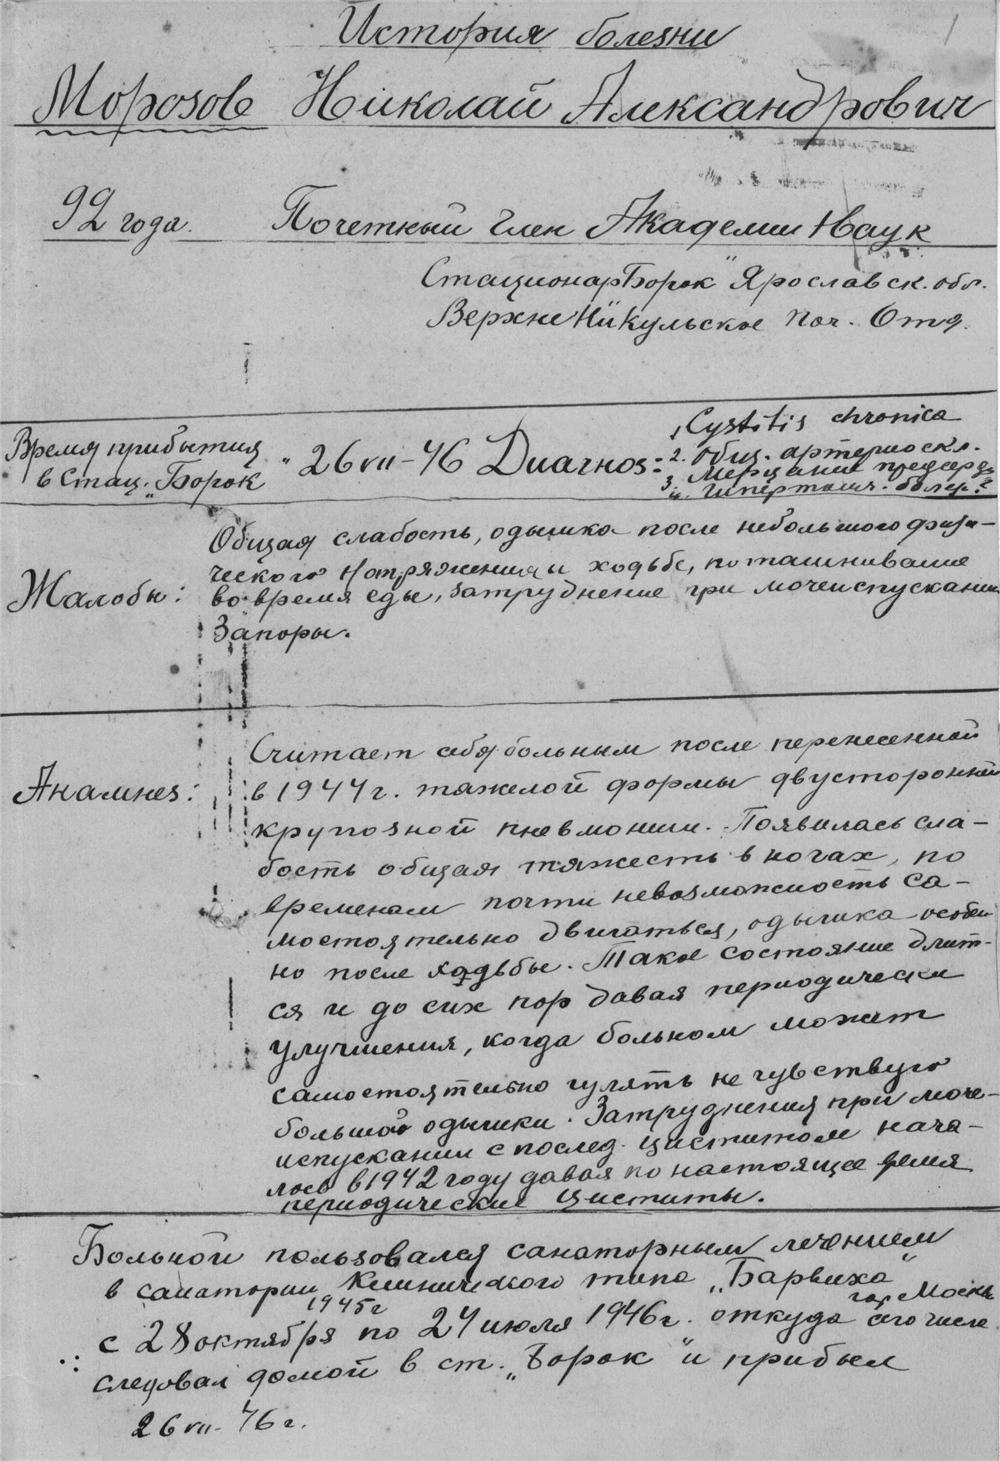 История болезни
Морозов Николай Александрович
92 года. Почетный член Академии Наук
Стационар Борок" Ярославск. обл.
Верхне Никульское поч. Отд.
Время прибытия
в Стац. „Борок
26 VII – 46 Диагноз:
1, Cystitis chronica
2. Общ. артериоскл.
3. Мерцание предсерд
4. Гипертонич. болез.?
Жалобы:
Общая слабость, одышка после небольшого физи-
ческого напряжения и ходьбе, поташнивание
во время еды, затруднение при мочеиспускании
Запоры.
Анамнез:
Считает себя больным после перенесенной
в 1944 г. тяжелой формы двусторонней
крупозной пневмонии. Появилась сла-
бость общая тяжесть в ногах, по
временам почти невозможность са-
мостоятельно двигаться, одышка особен
но после ходьбы. Такое состояние длит-
ся и до сих пор давая периодически
улучшения, когда больном может
самостоятельно гулять не чувствуя
большой одышки. Затруднения при моче-
испускании с послед. циститом нача-
лось в 1942 году давая по настоящее время
периодические циститы.
Больной пользовался санаторным лечением
в санатории Клинического типа „Барвиха"
гор Москвы
с 28 октября 1945г по 24 июля 1946 г. откуда сего числа
следовал домой в ст. „Борок" и прибыл
26 VII - 46 г.